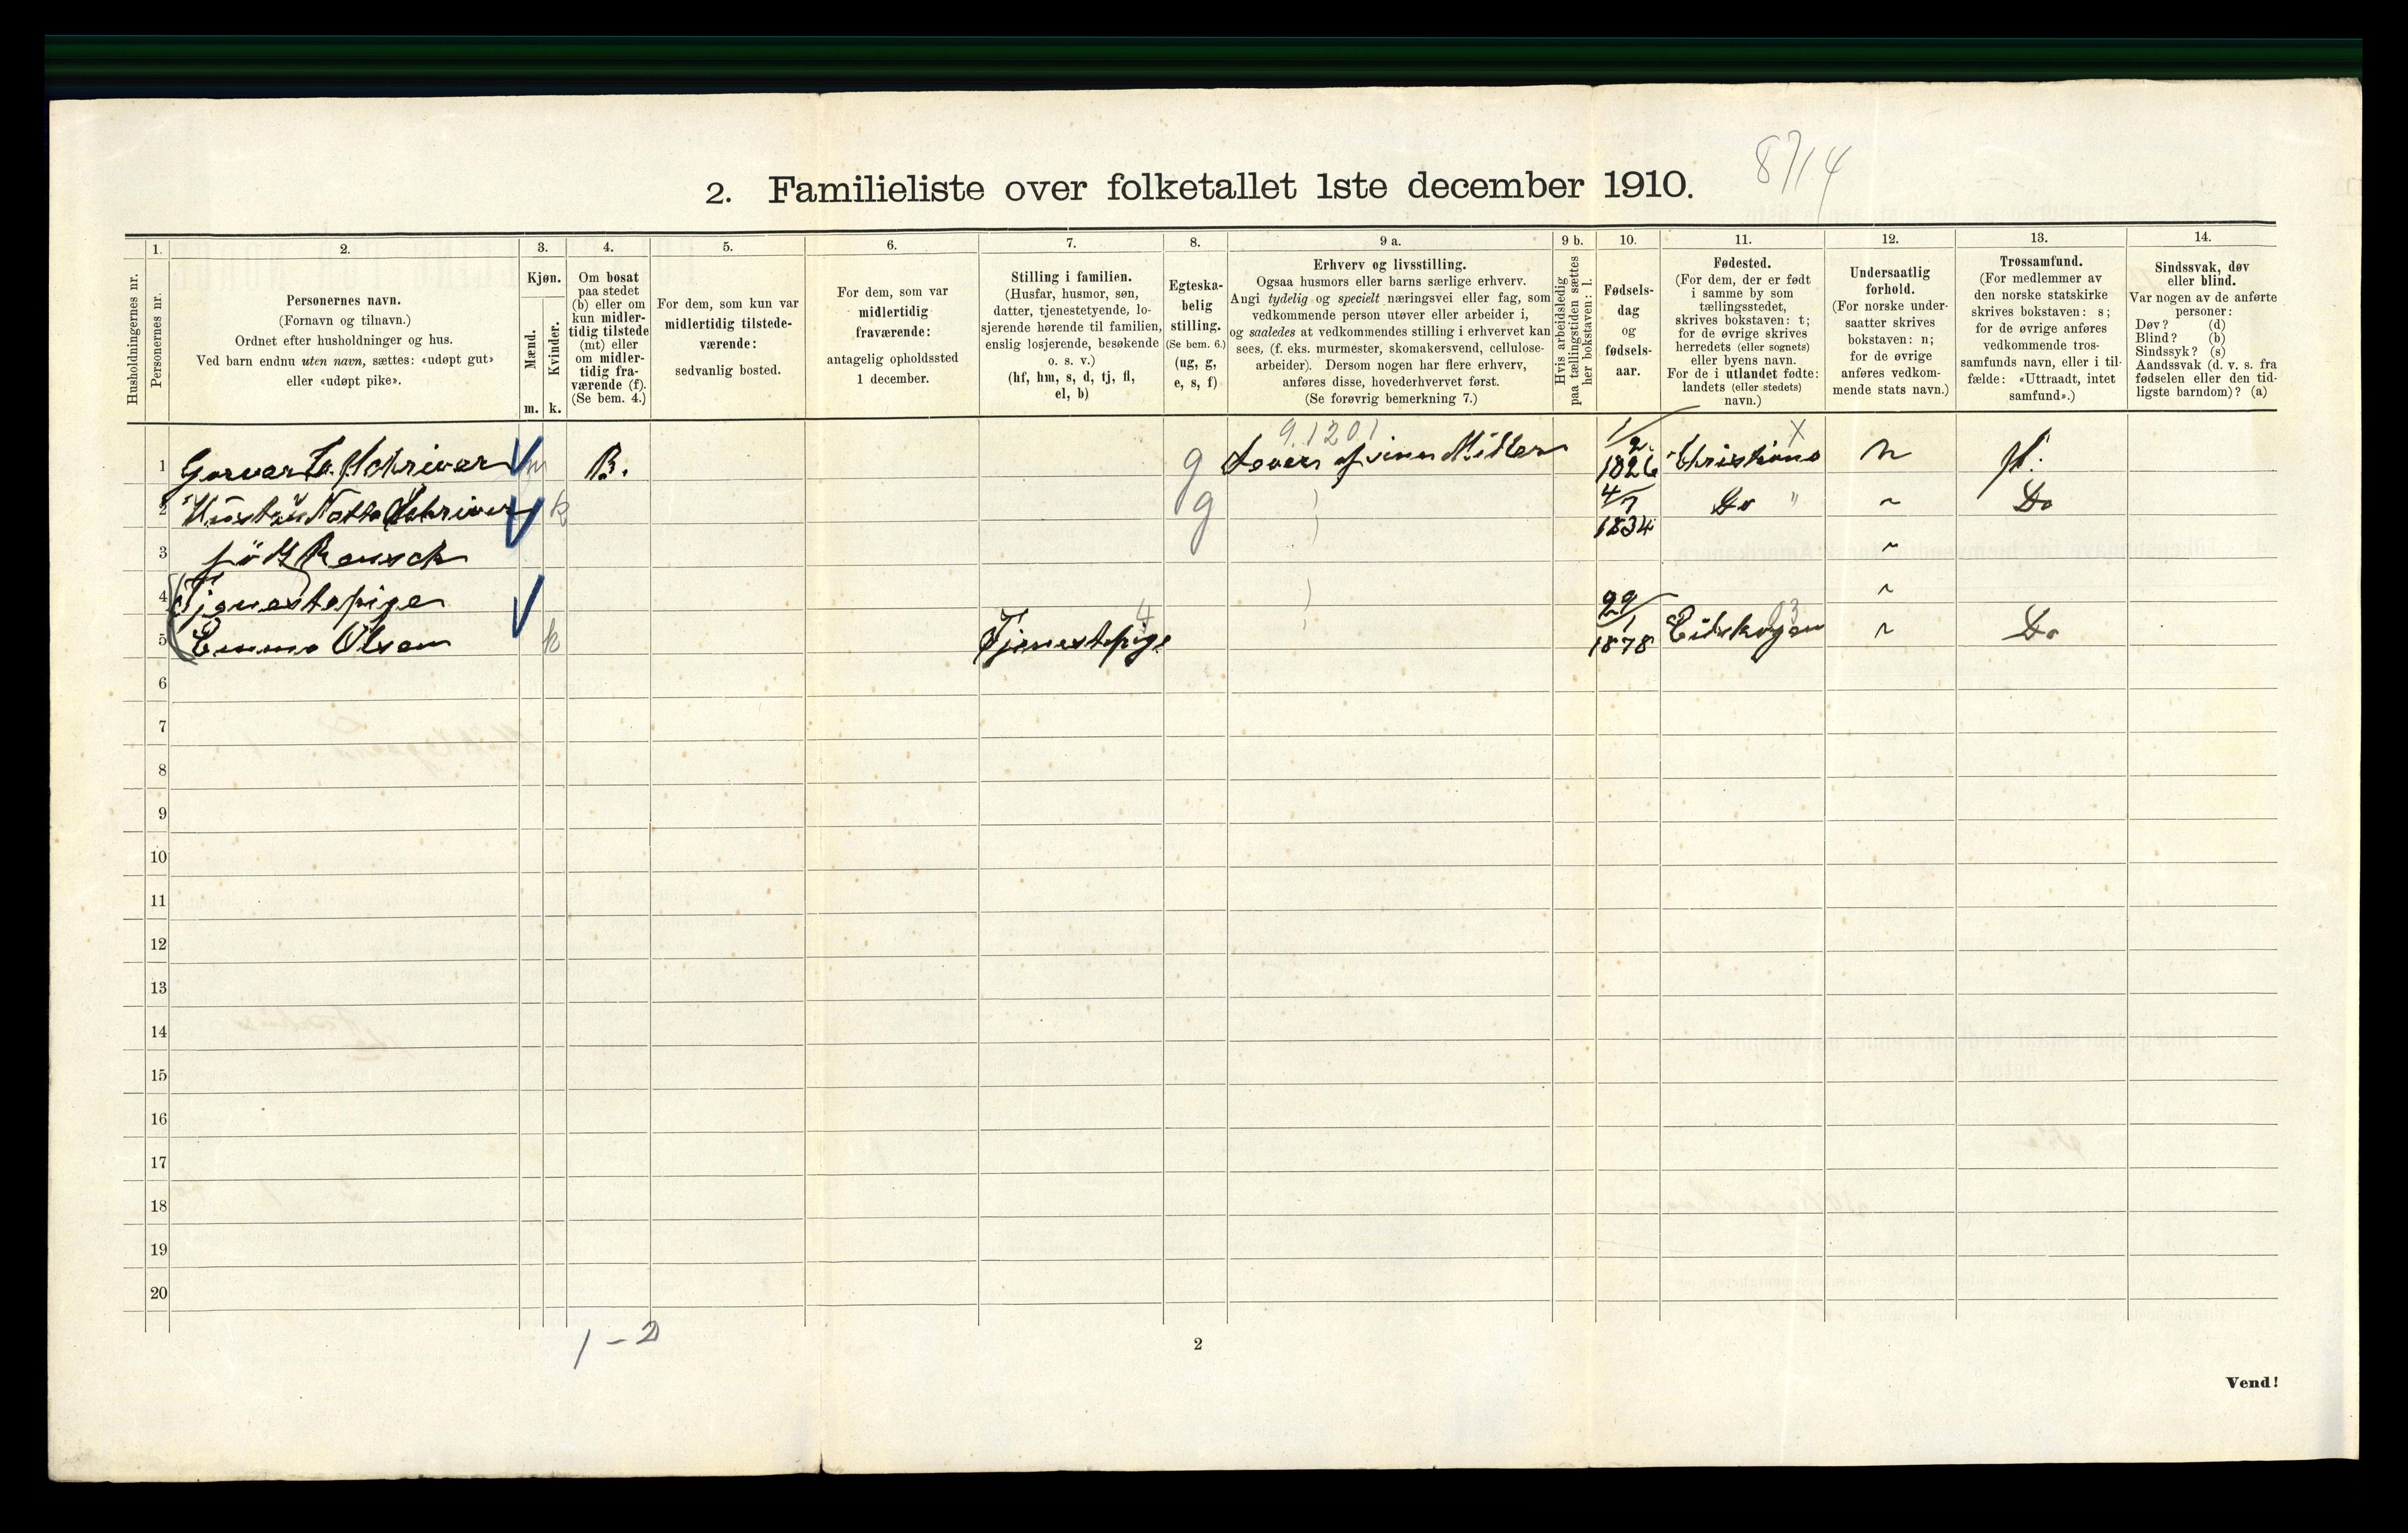 8714
2. Familieliste over folketallet 1ste december 1910.
Husholdningernes nr.
1.
Personernes nr.
2.
Personernes navn.
(Fornavn og tilnavn.)
Ordnet efter husholdninger og hus.
Ved barn endnu uten navn, sættes: «udøpt gut»
eller «udøpt pike».
3.
Kjøn.
Mænd.
Kvinder.
m. k.
4.
Om bosat
paa stedet
(b) eller om
kun midler-
tidig tilstede
(mt) eller
om midler-
tidig fra-
værende (f).
(Se bem. 4.)
5.
For dem, som kun var
midlertidig tilstede-
værende:
sedvanlig bosted.
6.
For dem, som var
midlertidig
fraværende:
antagelig opholdssted
1 december.
7.
Stilling i familien.
(Husfar, husmor, søn,
datter, tjenestetyende, lo-
sjerende hørende til familien,
enslig losjerende, besøkende
o. s. v.)
(hf, hm, s, d, tj, fl,
el, b)
8.
Egteska-
belig
stilling.
(Se bem. 6.)
(ug, g,
e, s, f)
9 a.
Erhverv og livsstilling.
Ogsaa husmors eller barns særlige erhverv.
Angi tydelig og specielt næringsvei eller fag, som
vedkommende person utøver eller arbeider i,
og saaledes at vedkommendes stilling i erhvervet kan
sees, (f. eks. murmester, skomakersvend, cellulose-
arbeider). Dersom nogen har flere erhverv,
anføres disse, hovederhvervet først.
(Se forøvrig bemerkning 7.)
9 b.
Hvis arbeidsledig
paa tællingstiden sættes
her bokstaven: l.
10.
Fødsels-
dag
og
fødsels-
aar.
11.
Fødested.
(For dem, der er født
i samme by som
tællingsstedet,
skrives bokstaven: t;
for de øvrige skrives
herredets (eller sognets)
eller byens navn.
For de i utlandet fødte:
landets (eller stedets)
navn.)
12.
Undersaatlig
forhold.
(For norske under-
saatter skrives
bokstaven: n;
for de øvrige
anføres vedkom-
mende stats navn.)
13.
Trossamfund.
(For medlemmer av
den norske statskirke
skrives bokstaven: s;
for de øvrige anføres
vedkommende tros-
samfunds navn, eller i til-
fælde: «Uttraadt, intet
samfund».)
14.
Sindssvak, døv
eller blind.
Var nogen av de anførte
personer:
Døv? (d)
Blind? (b)
Sindssyk? (s)
Aandssvak (d. v. s. fra
fødselen eller den tid-
ligste barndom)? (a)
9.1201
1 Schriver m B. g Lever af sine Midler 1/2 1826 Christiania X n
2 Hustru Schriver k g 4/7 1834 Do " Do
3 född Rausch
4 Tjenestepige
5 Emma Olsen k Tjenestepige 4 29/1 1878 Eidskogen 03 Do
6
7
8
9
10
11
12
13
14
15
16
17
18
19
20
1 - 2
2
Vend!